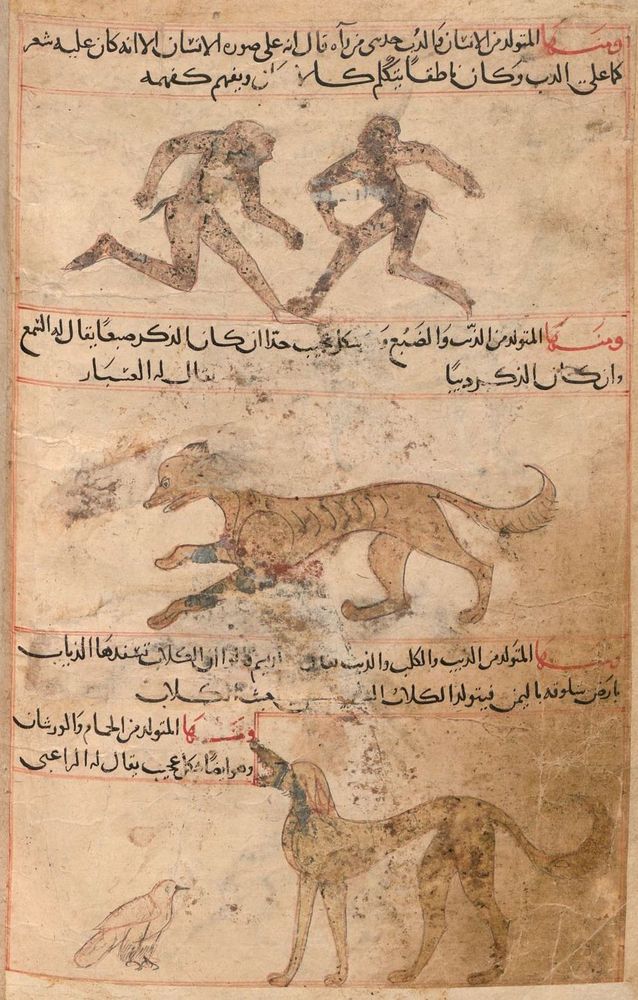 ومنها المتولد من الانسان والدب حدثني من رآه قال انه على صورة الانسان الا انه كان عليه شعر
كما على الدب وكان ناطقا يتكلم ويفهم كفهمه
ومنها المتولد من الذئب والضبع شكل عجيب جدا ان كان الذكر ضبعا يقال له السمع
وان كان الذكر ذيبا يقال له العسبار
ومنها المتولد من الذيب والكلب والذيب ان الكلاب تسفدها الذياب
بارض سلوقة باليمن فيتولد الكلاب الكلاب
ومنها المتولد من الحمام والورشان
وهو ايضا شكل عجيب يقال له الراعبي